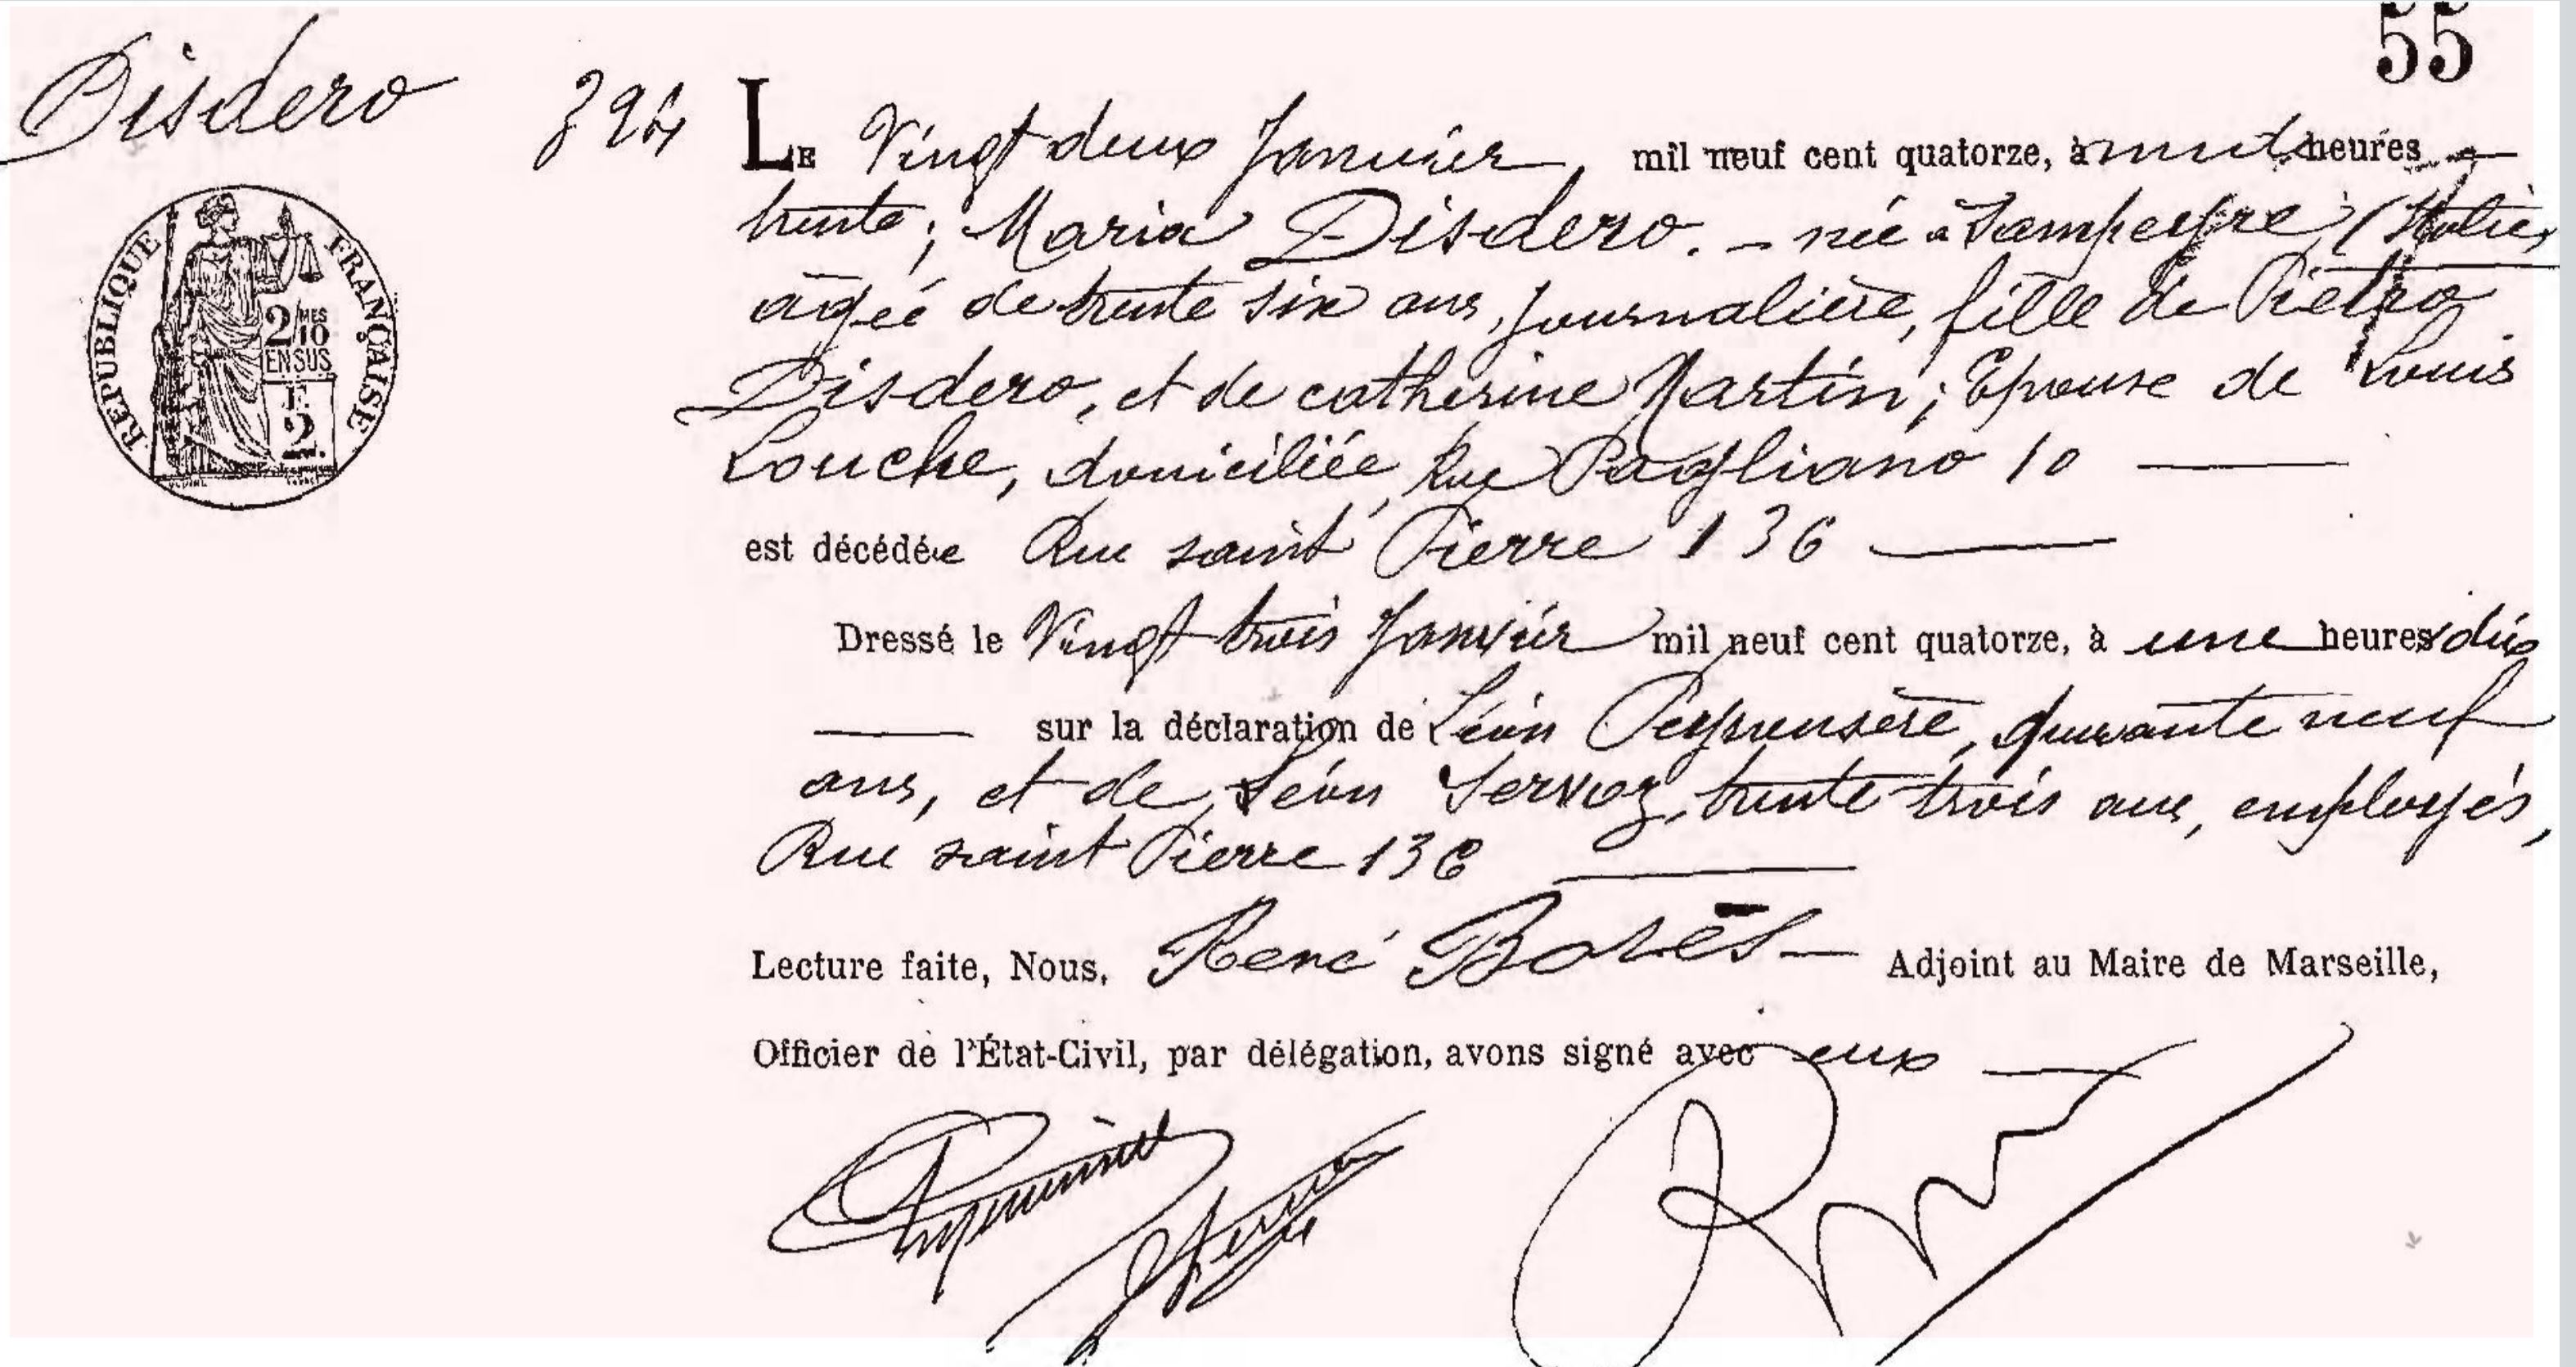 55
Disdero 324
LE Vingt deux Janvier, mil neuf cent quatorze, à heures —
trente; Maria Disdero. — née à Sampeyre (Italie)
âgée de trente six ans, journalière, fille de Pietro
Disdero, et de catherine Martin; Epouse de Louis
Louche, domiciliée, Rue Pagliano 10 —
est décédée Rue saint Pierre 136 —
Dressé le Vingt trois Janvier mil neuf cent quatorze, à une heures dix
— sur la déclaration de Léon quarante neuf
ans, et de Léon Servoz, trente trois ans, employés,
Rue saint Pierre 136 —
Lecture faite, Nous, René Adjoint au Maire de Marseille,
Officier de l'État-Civil, par délégation, avons signé avec eux —
RÉPUBLIQUE FRANÇAISE
2/10 MES
EN SUS
F.
2